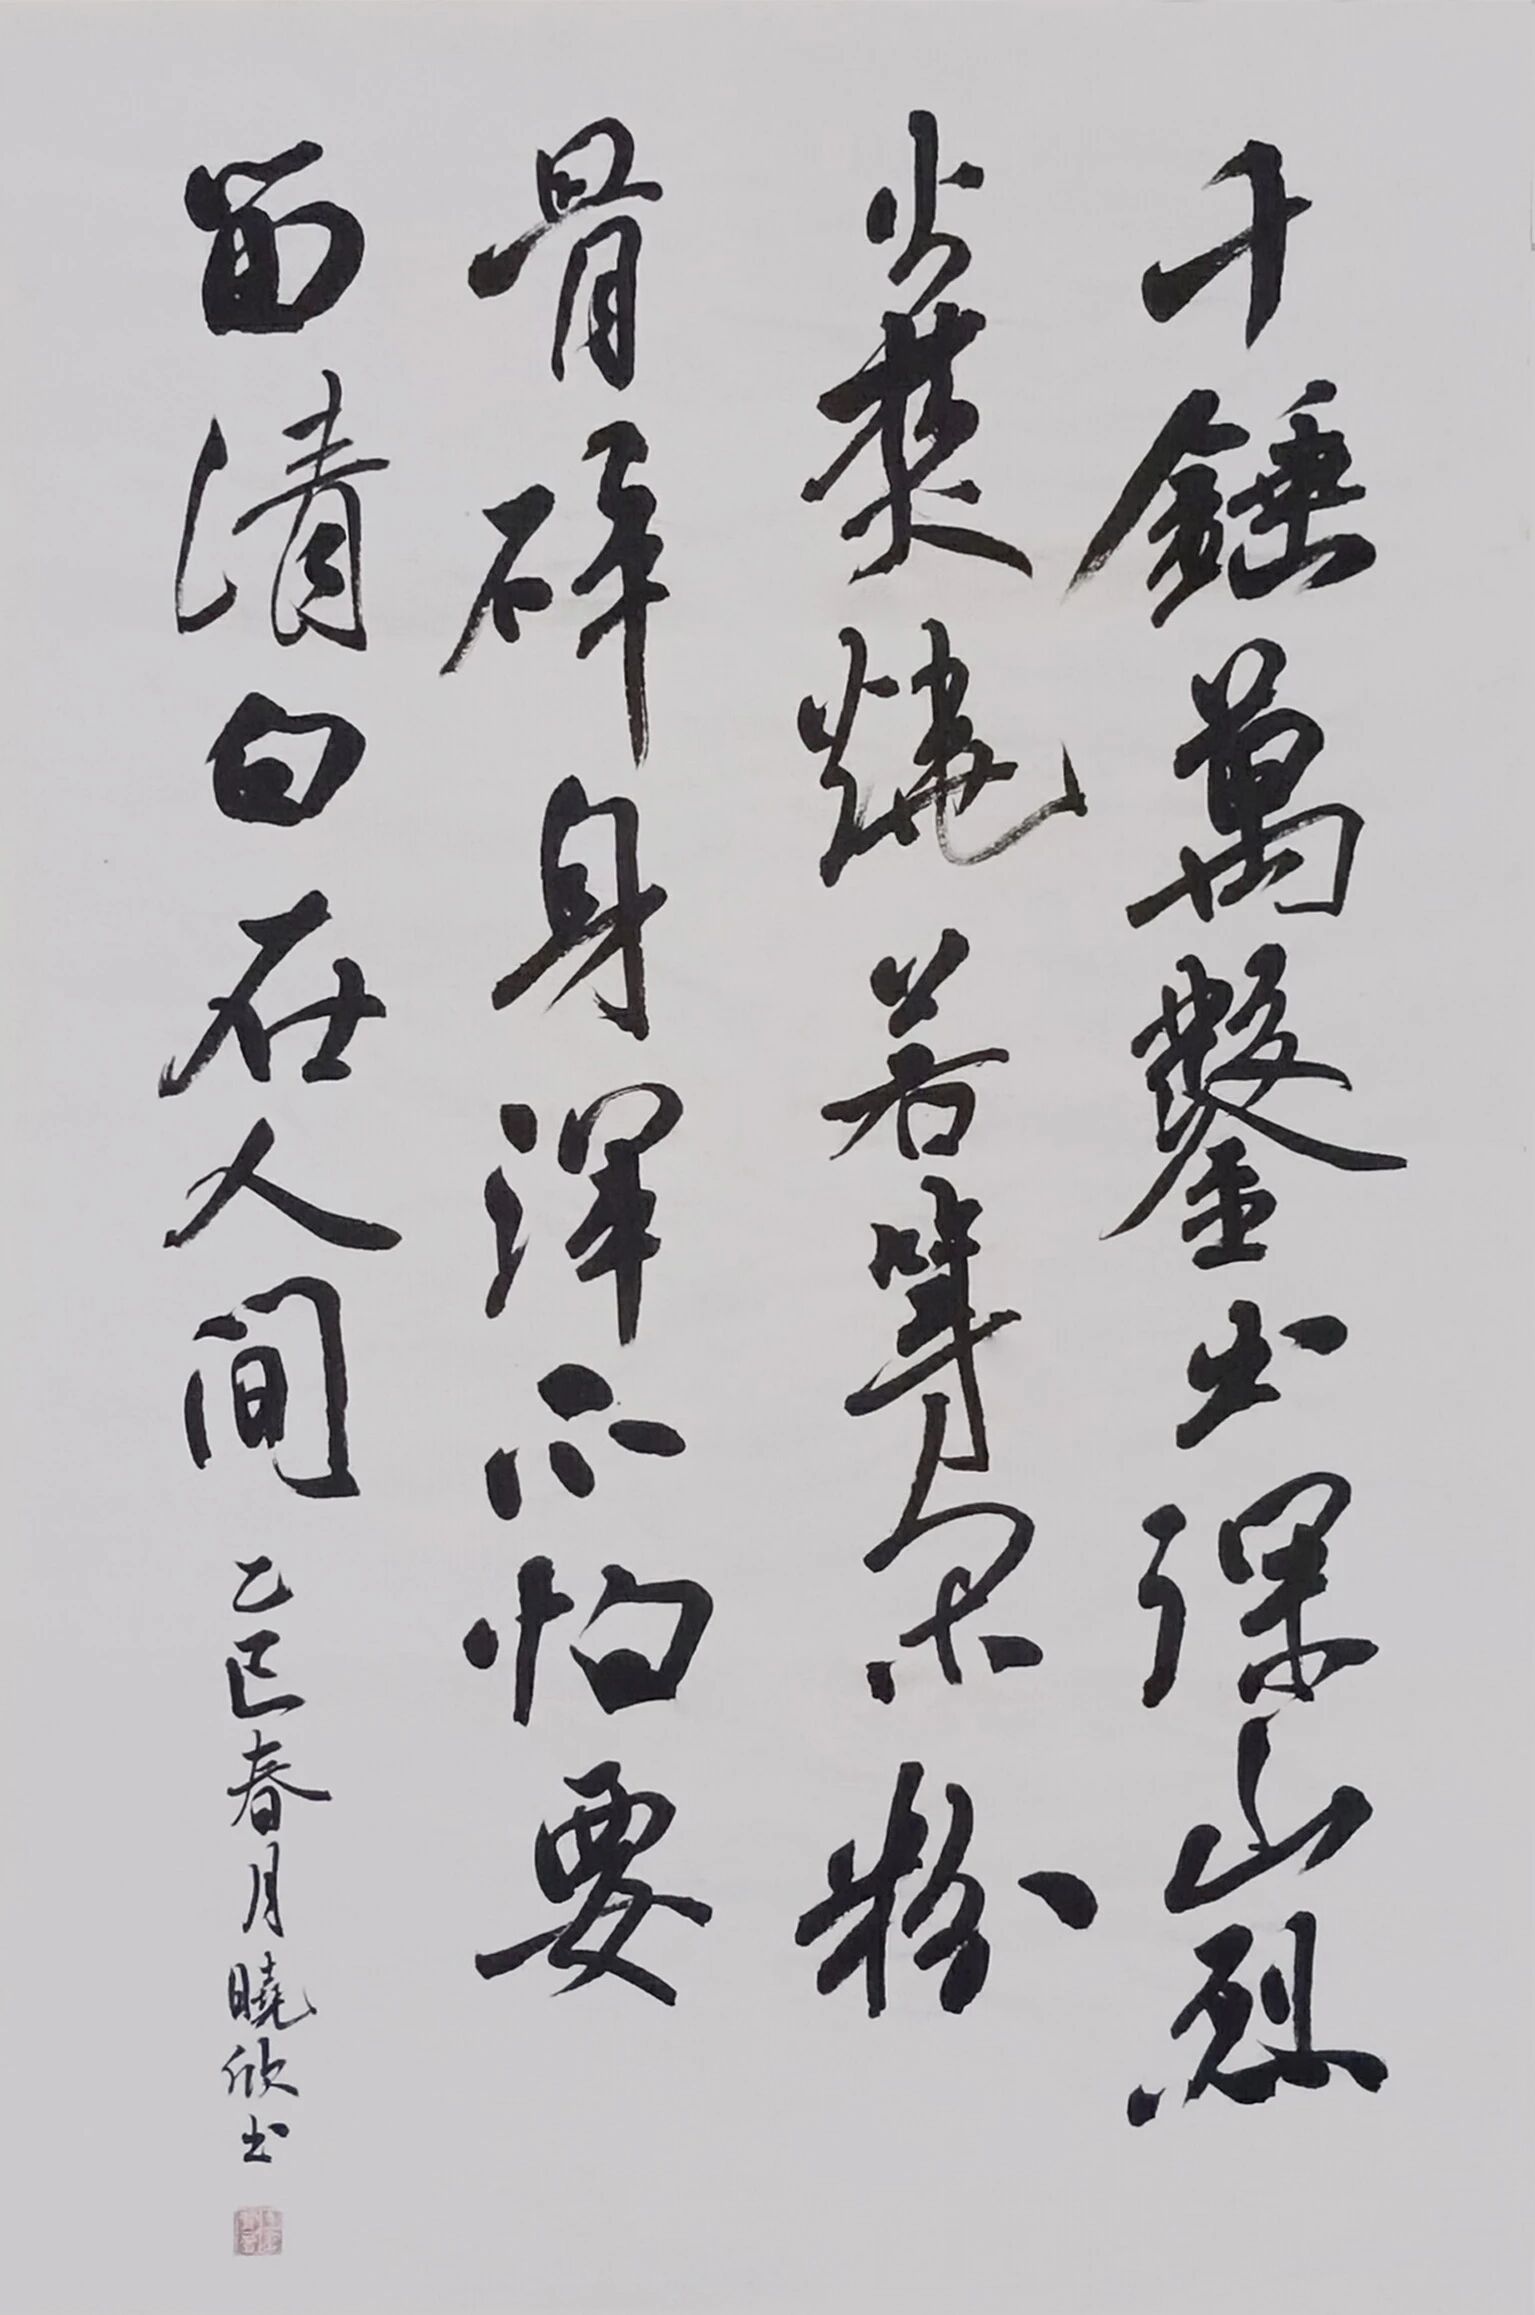 千錘萬鑿出深山烈
火焚燒若等閑粉
骨碎身渾不怕要
留清白在人間
乙巳春月曉欣书